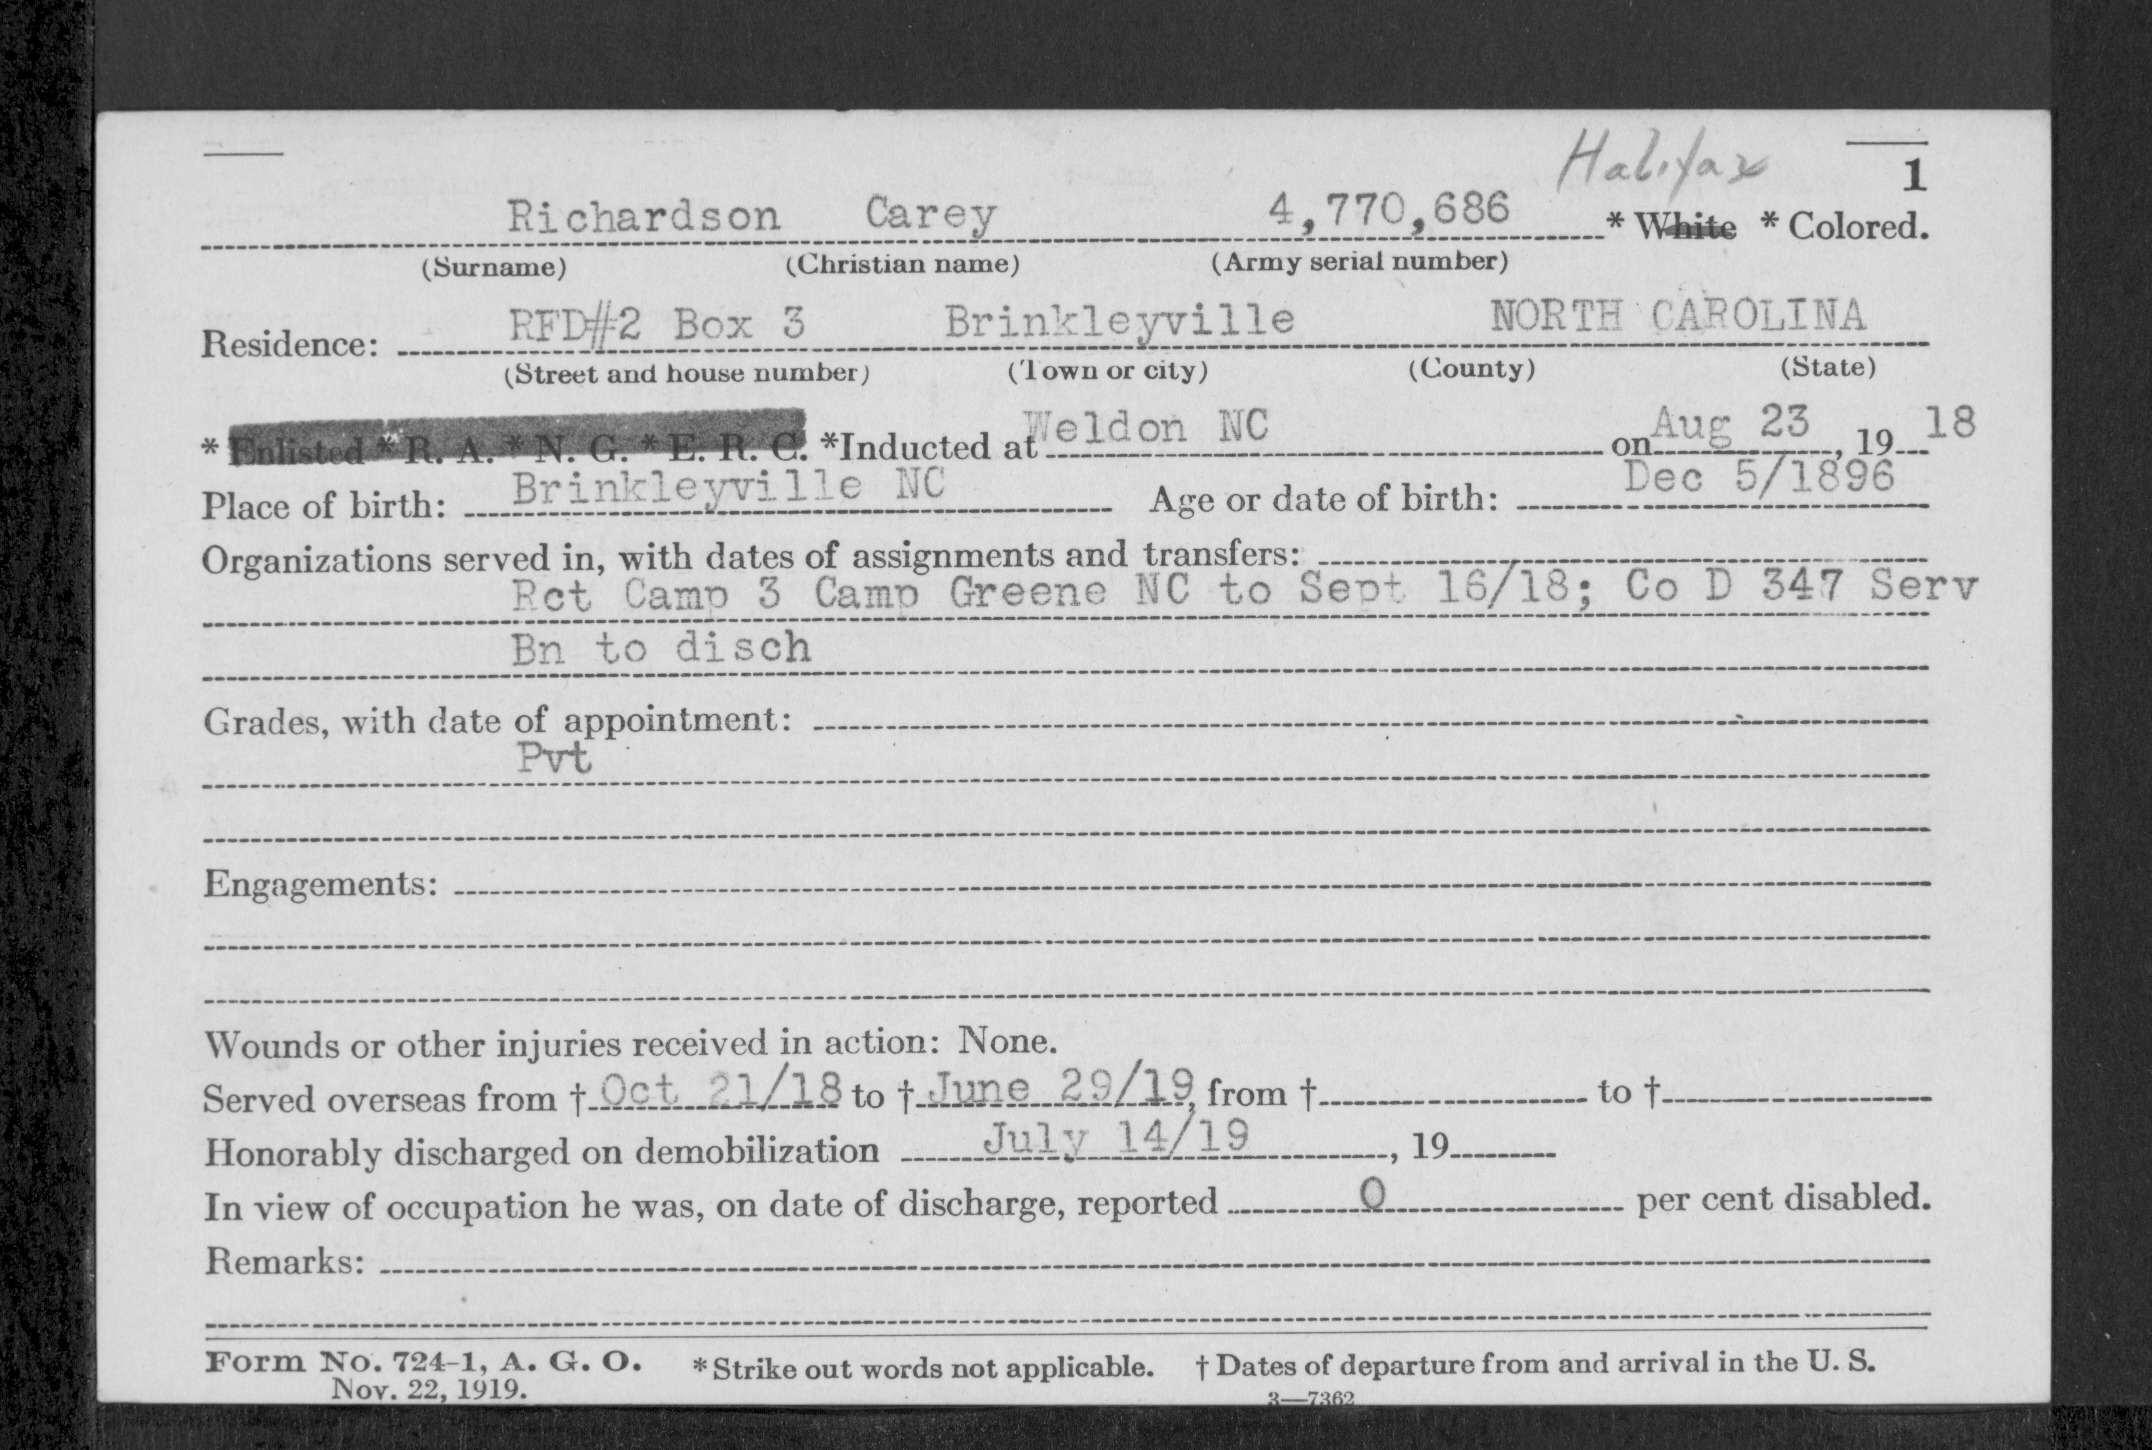 Halifax
1
Richardson Carey 4,770,686 * White * Colored.
(Surname) (Christian name) (Army serial number)
Residence: RFD#2 Box 3 Brinkleyville NORTH CAROLINA
(Street and house number) (Town or city) (County) (State)
* Enlisted * R. A. * N. G. * E. R. C. *Inducted at Weldon NC on Aug 23, 19 18
Place of birth: Brinkleyville NC Age or date of birth: Dec 5/1896
Organizations served in, with dates of assignments and transfers:
Rct Camp 3 Camp Greene NC to Sept 16/18; Co D 347 Serv
Bn to disch
Grades, with date of appointment:
Pvt
Engagements:
Wounds or other injuries received in action: None.
Served overseas from † Oct 21/18 to † June 29/19, from † to †
Honorably discharged on demobilization July 14/19, 19
In view of occupation he was, on date of discharge, reported 0 per cent disabled.
Remarks:
Form No. 724-1, A. G. O. * Strike out words not applicable. † Dates of departure from and arrival in the U. S.
Nov. 22, 1919. 3—7362